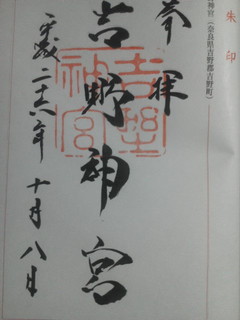 朱印
神宮（奈良県吉野郡吉野町）
奉拝
吉野神宮
吉野神宮
平成二十六年十月八日